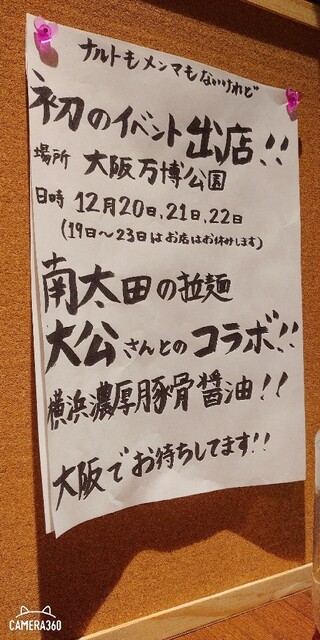 ナルトもメンマもないけれど
初のイベント出店!!
場所 大阪万博公園
日時 12月20日,21日,22日
(19日〜23日はお店はお休みします)
南太田の拉麺
大公さんとのコラボ!!
横浜濃厚豚骨醤油!!
大阪でお待ちしてます!!
CAMERA360